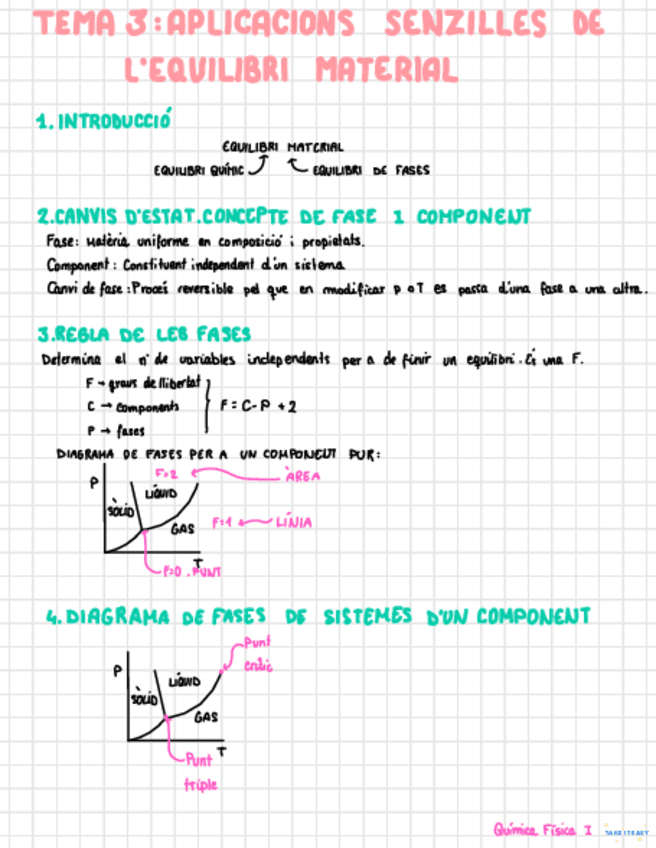 TEMA 3: APLICACIONS SENZILLES DE
L'EQUILIBRI MATERIAL
1. INTRODUCCIÓ
EQUILIBRI MATERIAL
EQUILIBRI QUÍMIC EQUILIBRI DE FASES
2. CANVIS D'ESTAT. CONCEPTE DE FASE 1 COMPONENT
Fase: Matèria uniforme en composició i propietats.
Component: Constituent independent d'un sistema
Canvi de fase: Procés reversible pel que en modificar p o T es passa d'una fase a una altra.
3. REGLA DE LES FASES
Determina el nº de variables independents per a de finir un equilibri. És una F.
F → graus de llibertat
C → components
P → fases
F = C - P + 2
DIAGRAMA DE FASES PER A UN COMPONENT PUR:
P
F=2
ÀREA
SÒLID
LÍQUID
GAS
F=1
LÍNIA
T
F=0. PUNT
4. DIAGRAMA DE FASES DE SISTEMES D'UN COMPONENT
Punt
crític
P
SÒLID
LÍQUID
GAS
T
Punt
triple
Química Física I